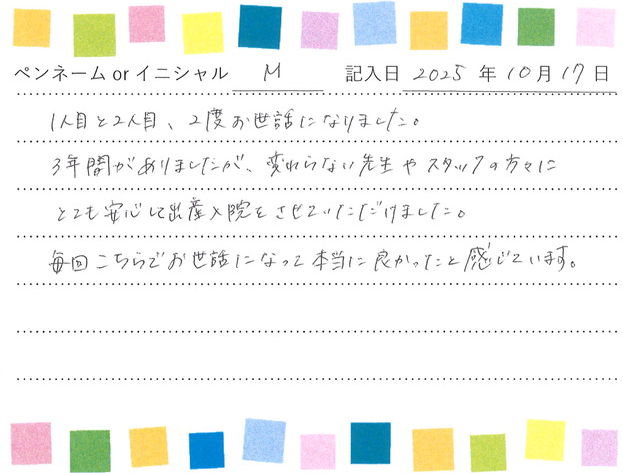 ペンネーム or イニシャル M 記入日 2025 年 10 月 17 日
1人目と2人目、2度お世話になりました。
3年間がありましたが、変わらない先生やスタッフの方々に
とても安心して出産入院をさせていただけました。
毎回こちらでお世話になって本当に良かったと感じています。